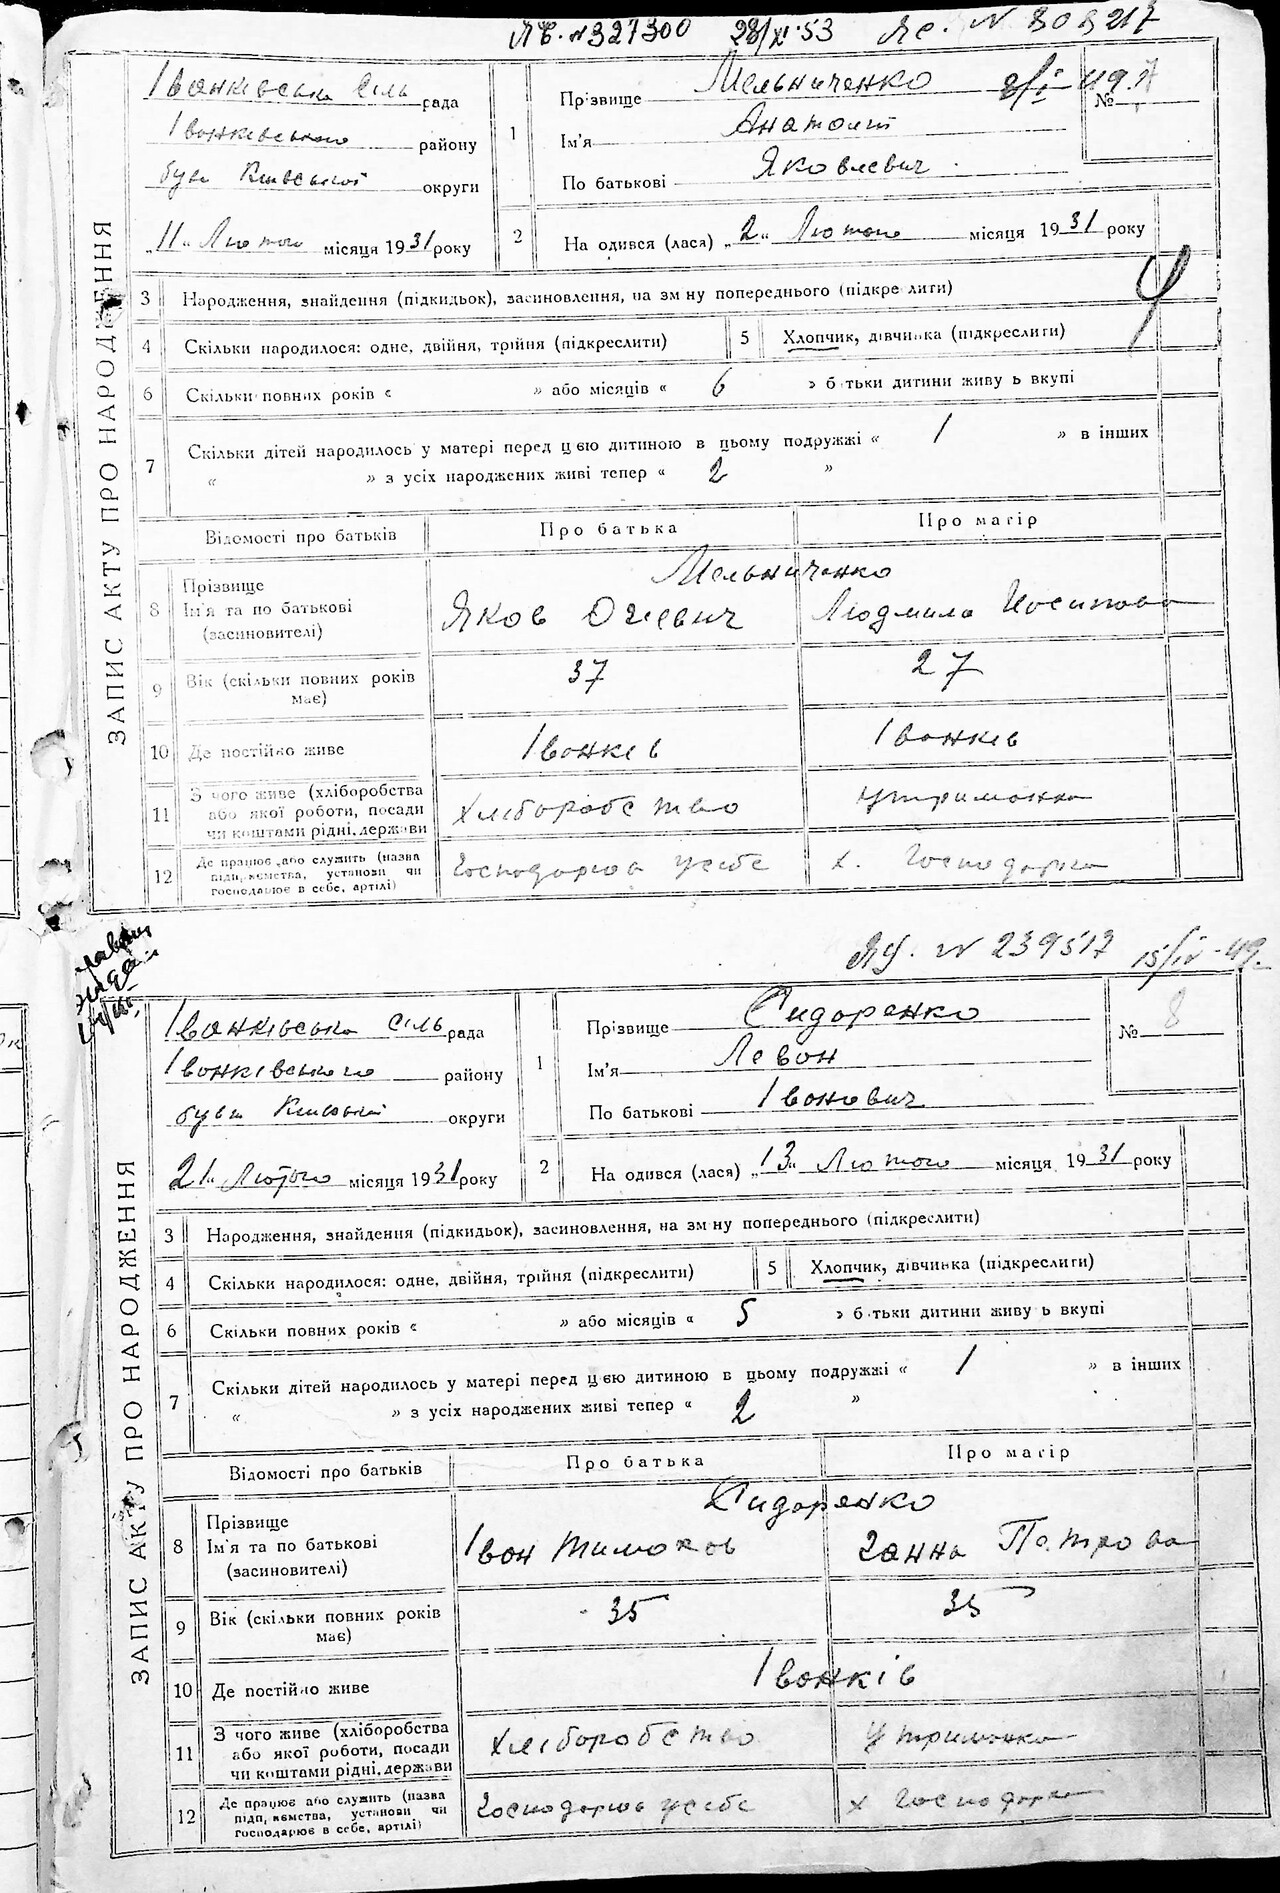 ЯЄ. N 327300 28/XI 53 ЯЄ. N 808217
Іванківська Сіль рада
Іванківського району
бувш Київської округи
„11„ Лютого місяця 1931 року
1
Прізвище Мельниченко
8/I 49.
№ 7
Ім'я Анатолій
По батькові Яковлевич
2
На одився (лася) „2„ Лютого місяця 1931 року
ЗАПИС АКТУ ПРО НАРОДЖЕННЯ
3 Народження, знайдення (підкидьок), засиновлення, на зм ну попереднього (підкре лити)
4 Скільки народилося: одне, двійня, трійня (підкреслити)
5 Хлопчик, дівчинка (підкреслити)
6 Скільки повних років « » або місяців « 6 » б тьки дитини живу ь вкупі
7 Скільки дітей народилось у матері перед ц єю дитиною в цьому подружжі « 1 » в інших
« » з усіх народжених живі тепер « 2 »
Відомості про батьків Про батька Про матір
8 Прізвище Мельниченко
Ім'я та по батькові Яков Юхєвич Людмила Йосипова
(засиновителі)
9 Вік (скільки повних років має) 37 27
10 Де постійно живе Іванків Іванків
11 З чого живе (хліборобства
або якої роботи, посади хліборобство утриманка
чи коштами рідні, держави
12 Де працює або служить (назва
підп, ємства, установи чи господарює у себе х. Господарка
господарює в себе, артілі)
N 239517 15/IV-49.
Іванківська Сіль рада
Іванківського району
бувш Київської округи
21„ Лютого місяця 1931 року
1
Прізвище Сидоренко
№ 8
Ім'я Левон
По батькові Іванович
2
На одився (лася) „13„ Лютого місяця 1931 року
ЗАПИС АКТУ ПРО НАРОДЖЕННЯ
3 Народження, знайдення (підкидьок), засиновлення, на зм ну попереднього (підкреслити)
4 Скільки народилося: одне, двійня, трійня (підкреслити)
5 Хлопчик, дівчинка (підкреслити)
6 Скільки повних років « » або місяців « 5 » б тьки дитини живу ь вкупі
7 Скільки дітей народилось у матері перед ц єю дитиною в цьому подружжі « 1 » в інших
« » з усіх народжених живі тепер « 2 »
Відомості про батьків Про батька Про матір
8 Прізвище Сидоренко
Ім'я та по батькові Іван Тимохов Ганна Петрова
(засиновителі)
9 Вік (скільки повних років має) 35 35
10 Де постійно живе Іванків
11 З чого живе (хліборобства
або якої роботи, посади хліборобство утриманка
чи коштами рідні, держави
12 Де працює або служить (назва
підп, ємства, установи чи господарює у себе х Господарка
господарює в себе, артілі)